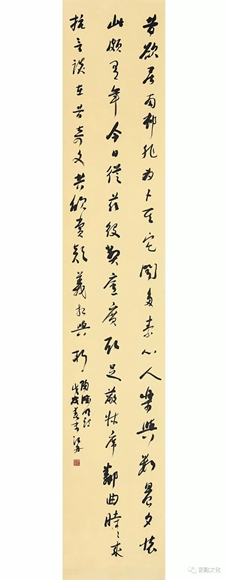 昔欲居南邨非为卜其宅闻多素心人樂與數晨夕懷
此頗有年今日從茲役弊廬廣取足蔽牀席鄰曲時々來
抗言談在昔奇文共欣賞疑義相與析
陶淵明詩
戊戌春
文化